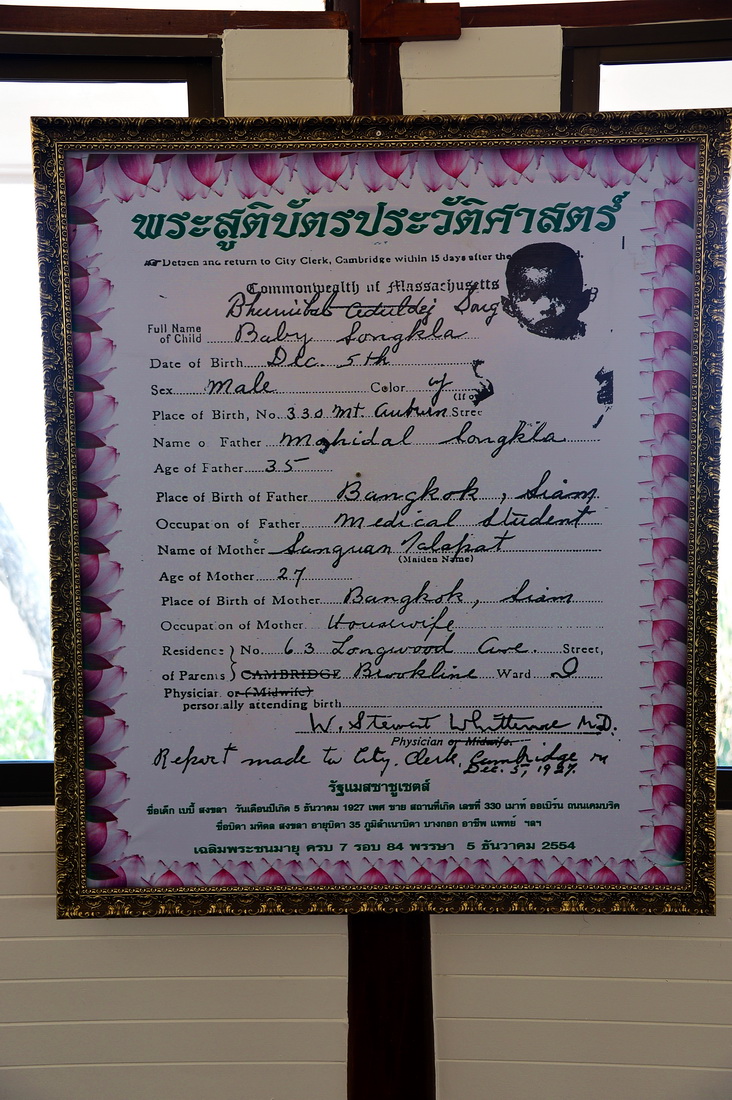 พระสูติบัตรประวัติศาสตร์
Detach and return to City Clerk, Cambridge within 15 days after the
Commonwealth of Massachusetts
Bhumibol Aduldej Song
Full Name of Child Baby Songkla
Date of Birth Dec. 5th
Sex Male Color y
(If o
Place of Birth, No. 330 Mt Auburn Stree
Name o Father Mahidal Songkla
Age of Father 35
Place of Birth of Father Bangkok, Siam
Occupat on of Father Medical Student
Name of Mother Sanguan Talapat
(Maiden Name)
Age of Mother 27
Place of Birth of Mother Bangkok, Siam
Occupat on of Mother Housewife
Residence No. 63 Longwood Ave. Street,
of Parents CAMBRIDGE Brookline Ward
Physician or (Midwife)
personally attending birth
W. Stewart Whittemore M.D.
Physician or Midwife.
Report made to City Clerk, Cambridge on
Dec. 5, 1927.
รัฐแมสซาชูเซตส์
ชื่อเด็ก เบบี้ สงขลา วันเดือนปีเกิด 5 ธันวาคม 1927 เพศ ชาย สถานที่เกิด เลขที่ 330 เมาท์ ออเบิร์น ถนนเคมบริค
ชื่อบิดา มหิดล สงขลา อายุบิดา 35 ภูมิลำเนาบิดา บางกอก อาชีพ แพทย์ ฯลฯ
เฉลิมพระชนมายุ ครบ 7 รอบ 84 พรรษา 5 ธันวาคม 2554